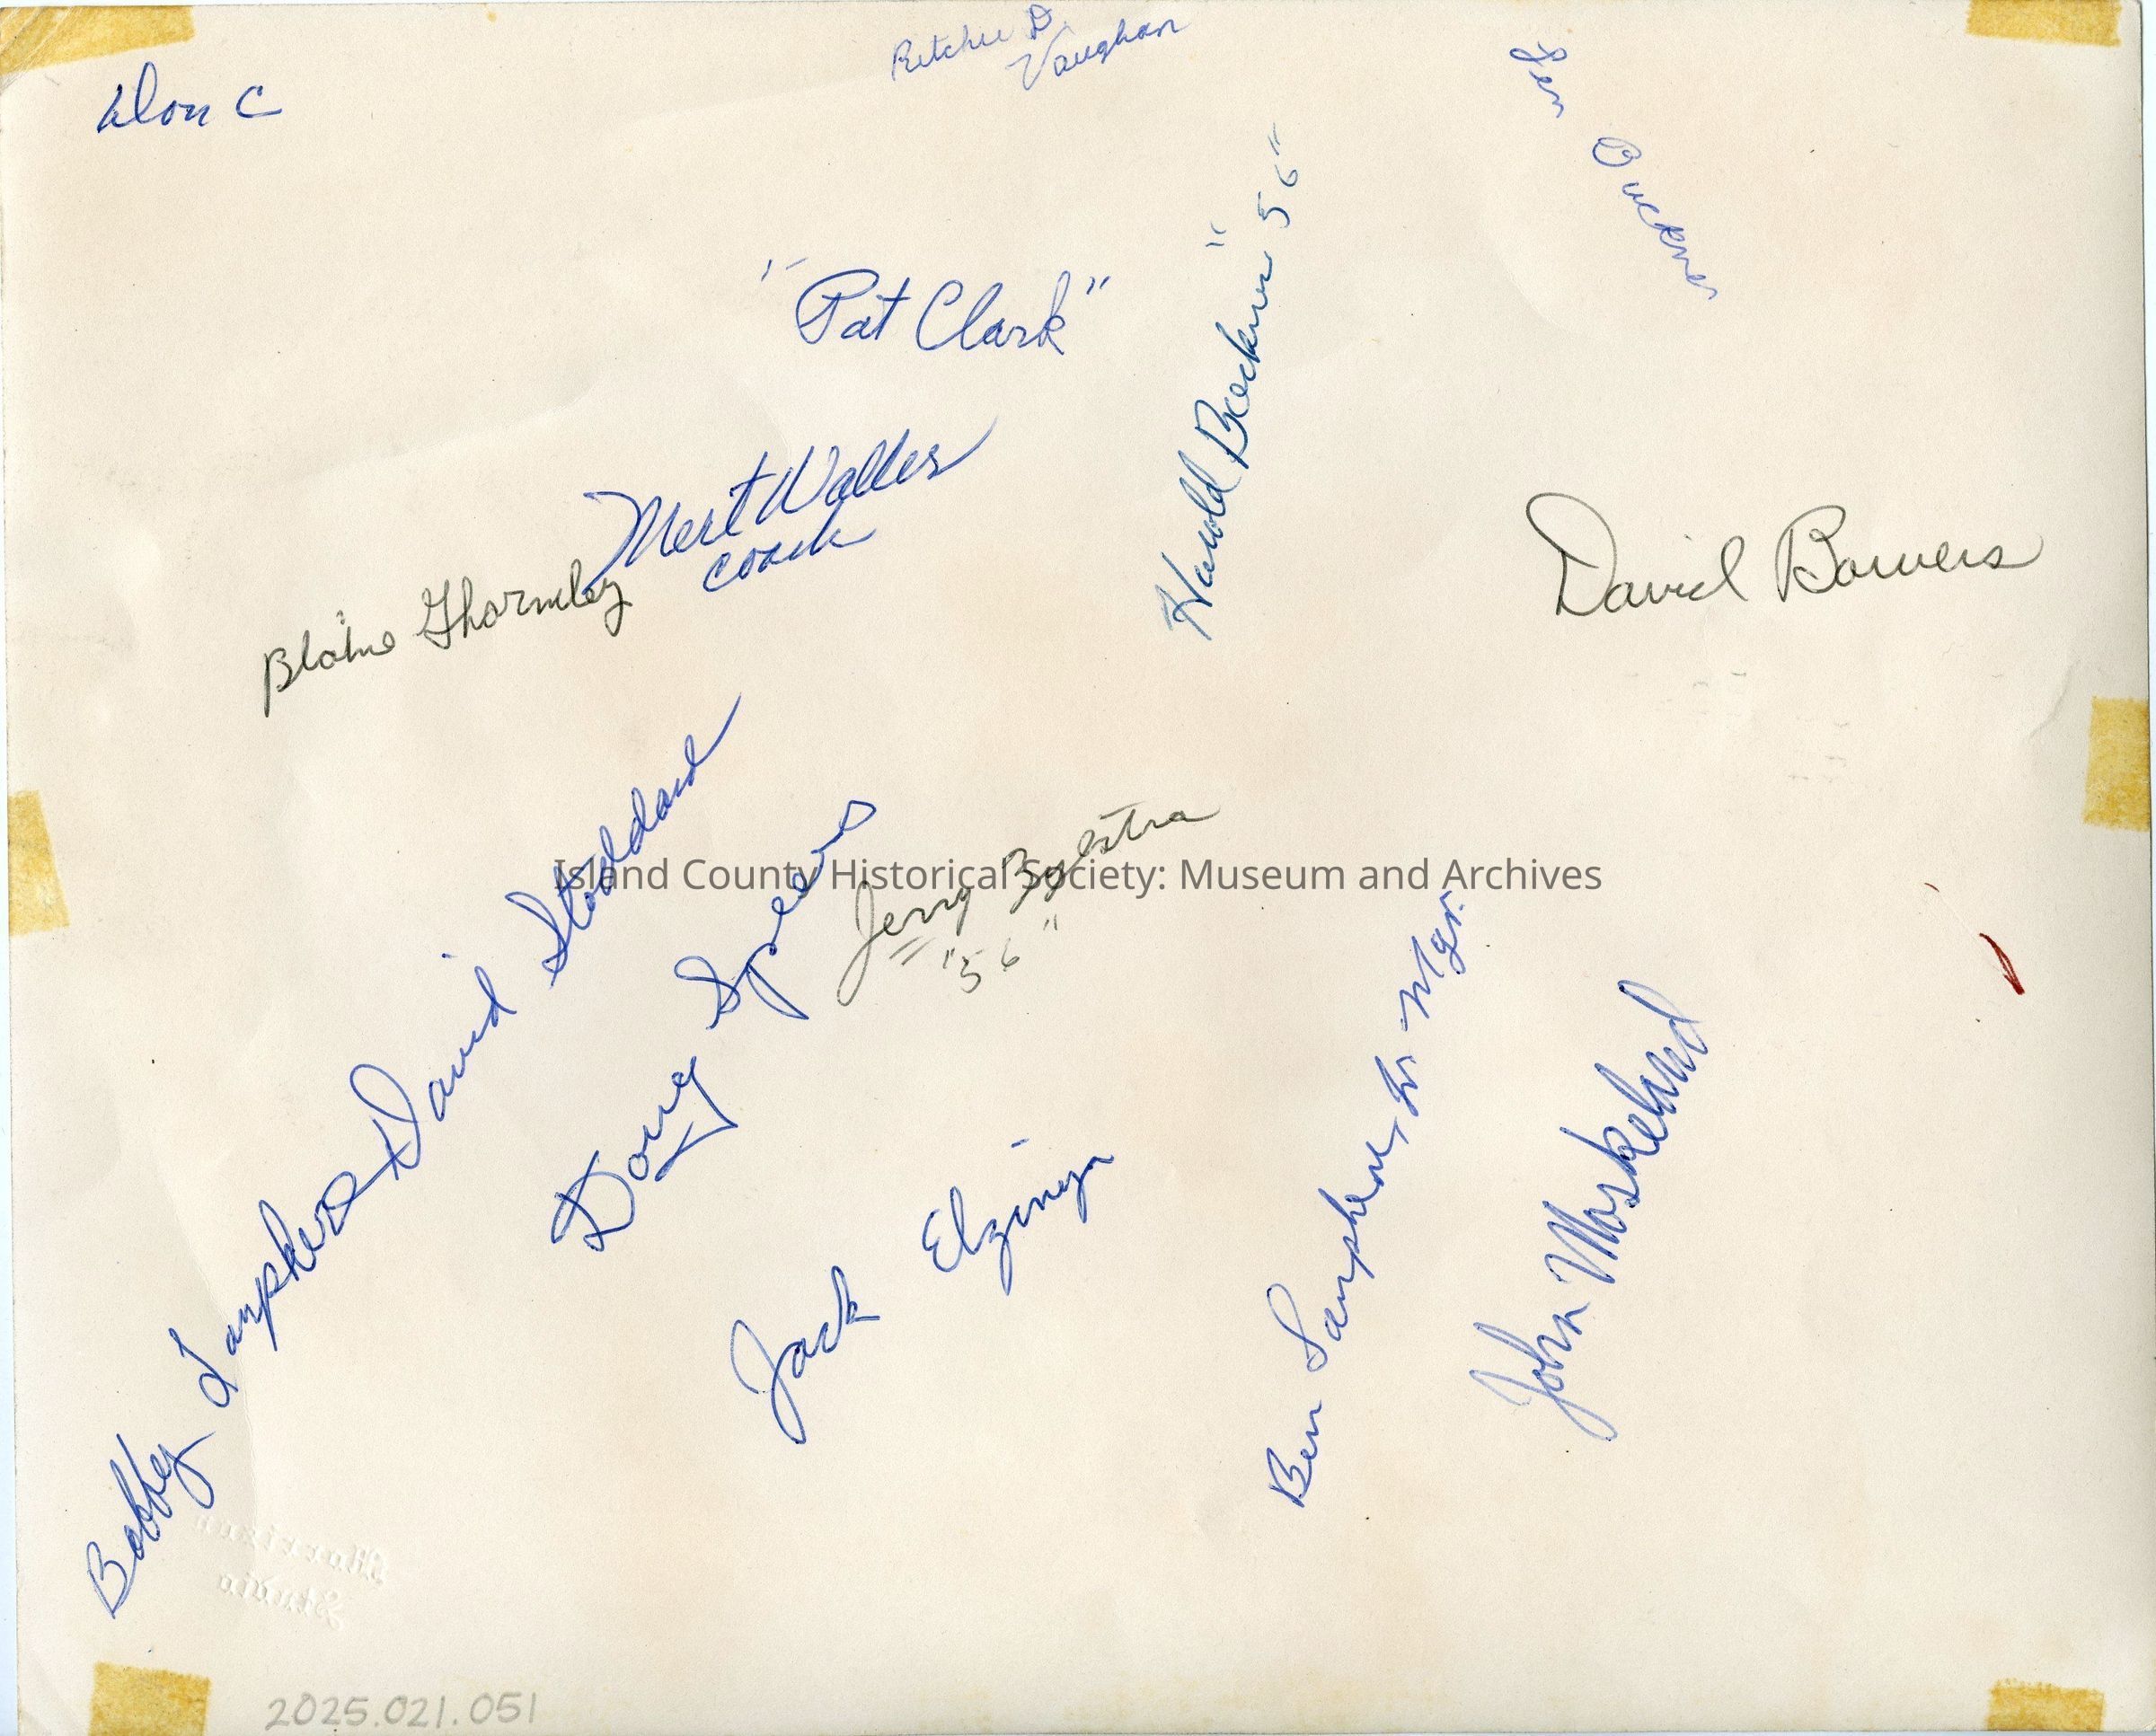 Ritchie D
Vaughan
Don C
"Pat Clark"
Harold "56"
Mert Waller
coach
David Bowers
Blaine Thormley
David Stoddard
Doug Speers
Jerry Bylstra
"56"
Island County Historical Society: Museum and Archives
Bobby
Jack Elzinga
Ben Lamphere, Jr. Mgr.
John Maskelund
Morrison
Studio
2025.021.051